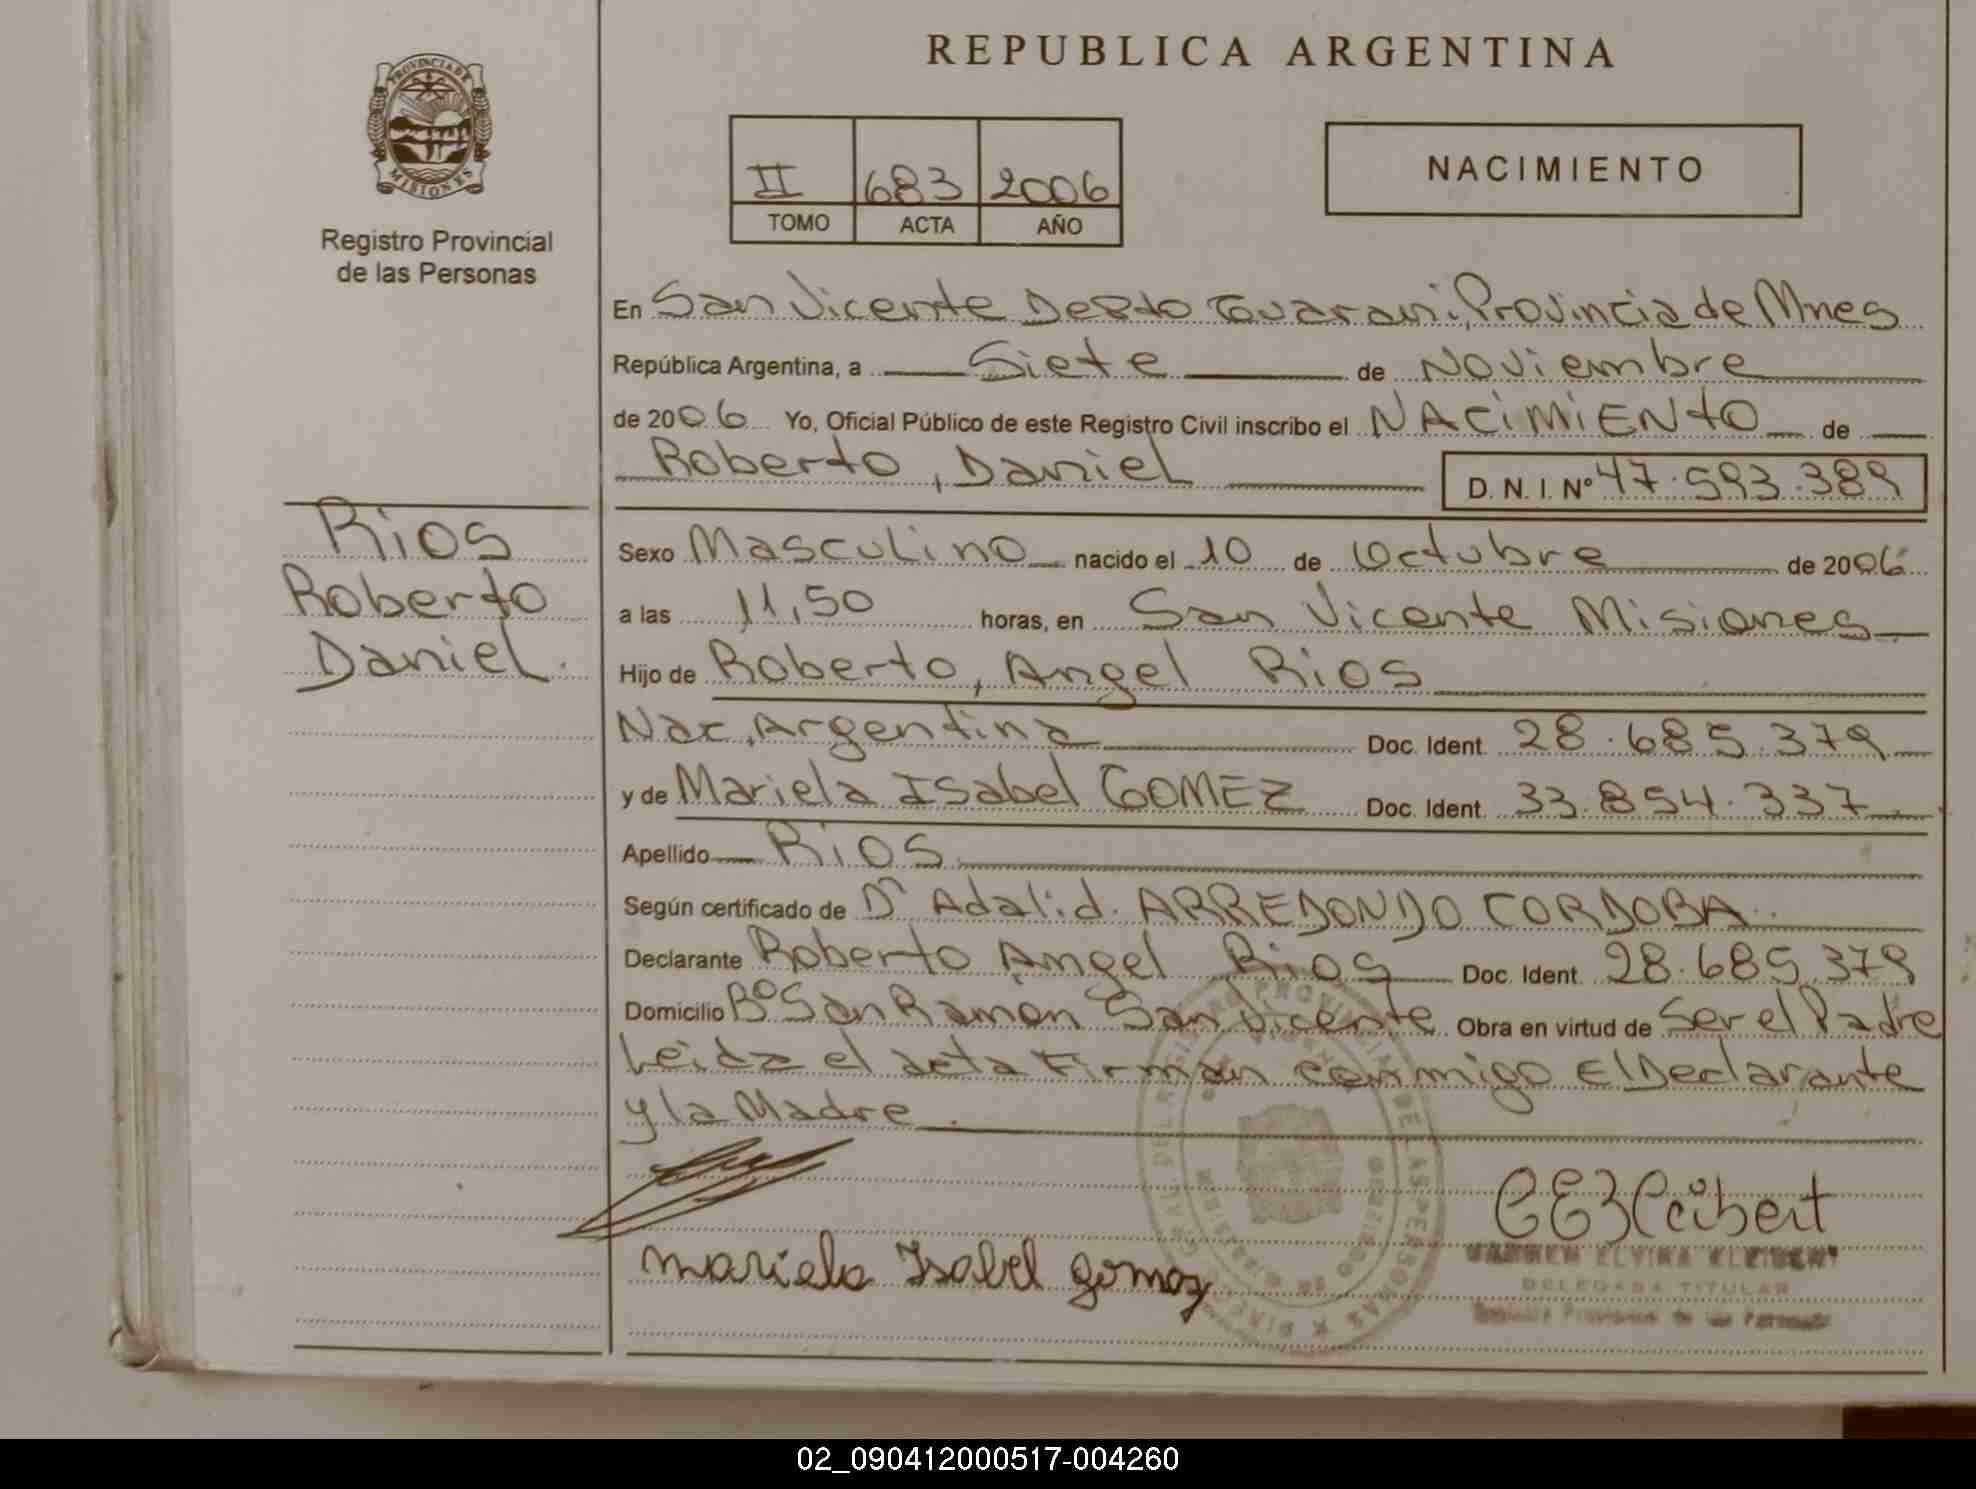 REPUBLICA ARGENTINA
PROVINCIA DE
MISIONES
Registro Provincial
de las Personas
II 683 2006
TOMO ACTA AÑO
NACIMIENTO
En San Vicente Depto Guarani, Provincia de Mnes
República Argentina, a Siete de Noviembre
de 2006 Yo, Oficial Público de este Registro Civil inscribo el NACIMIENTO de
Roberto, Daniel D. N. I. Nº 47.593.389
Rios
Roberto
Daniel.
Sexo Masculino nacido el 10 de Octubre de 2006
a las 11,50 horas, en San Vicente Misiones
Hijo de Roberto, Angel Rios
Nac. Argentina Doc. Ident. 28.685.379
y de Mariela Isabel GOMEZ Doc. Ident. 33.854.337
Apellido Rios
Según certificado de Dr Adalid. ARREDONDO CORDOBA.
Declarante Roberto Angel Rios Doc. Ident. 28.685.379
Domicilio Bº San Ramon San Vicente Obra en virtud de Ser el Padre
Leida el acta Firman conmigo El Declarante
y la Madre
Mariela Isabel Gomez
CARMEN ELVIRA KLEIBERT
DELEGADA TITULAR
Registro Provincial de las Personas
02_090412000517-004260